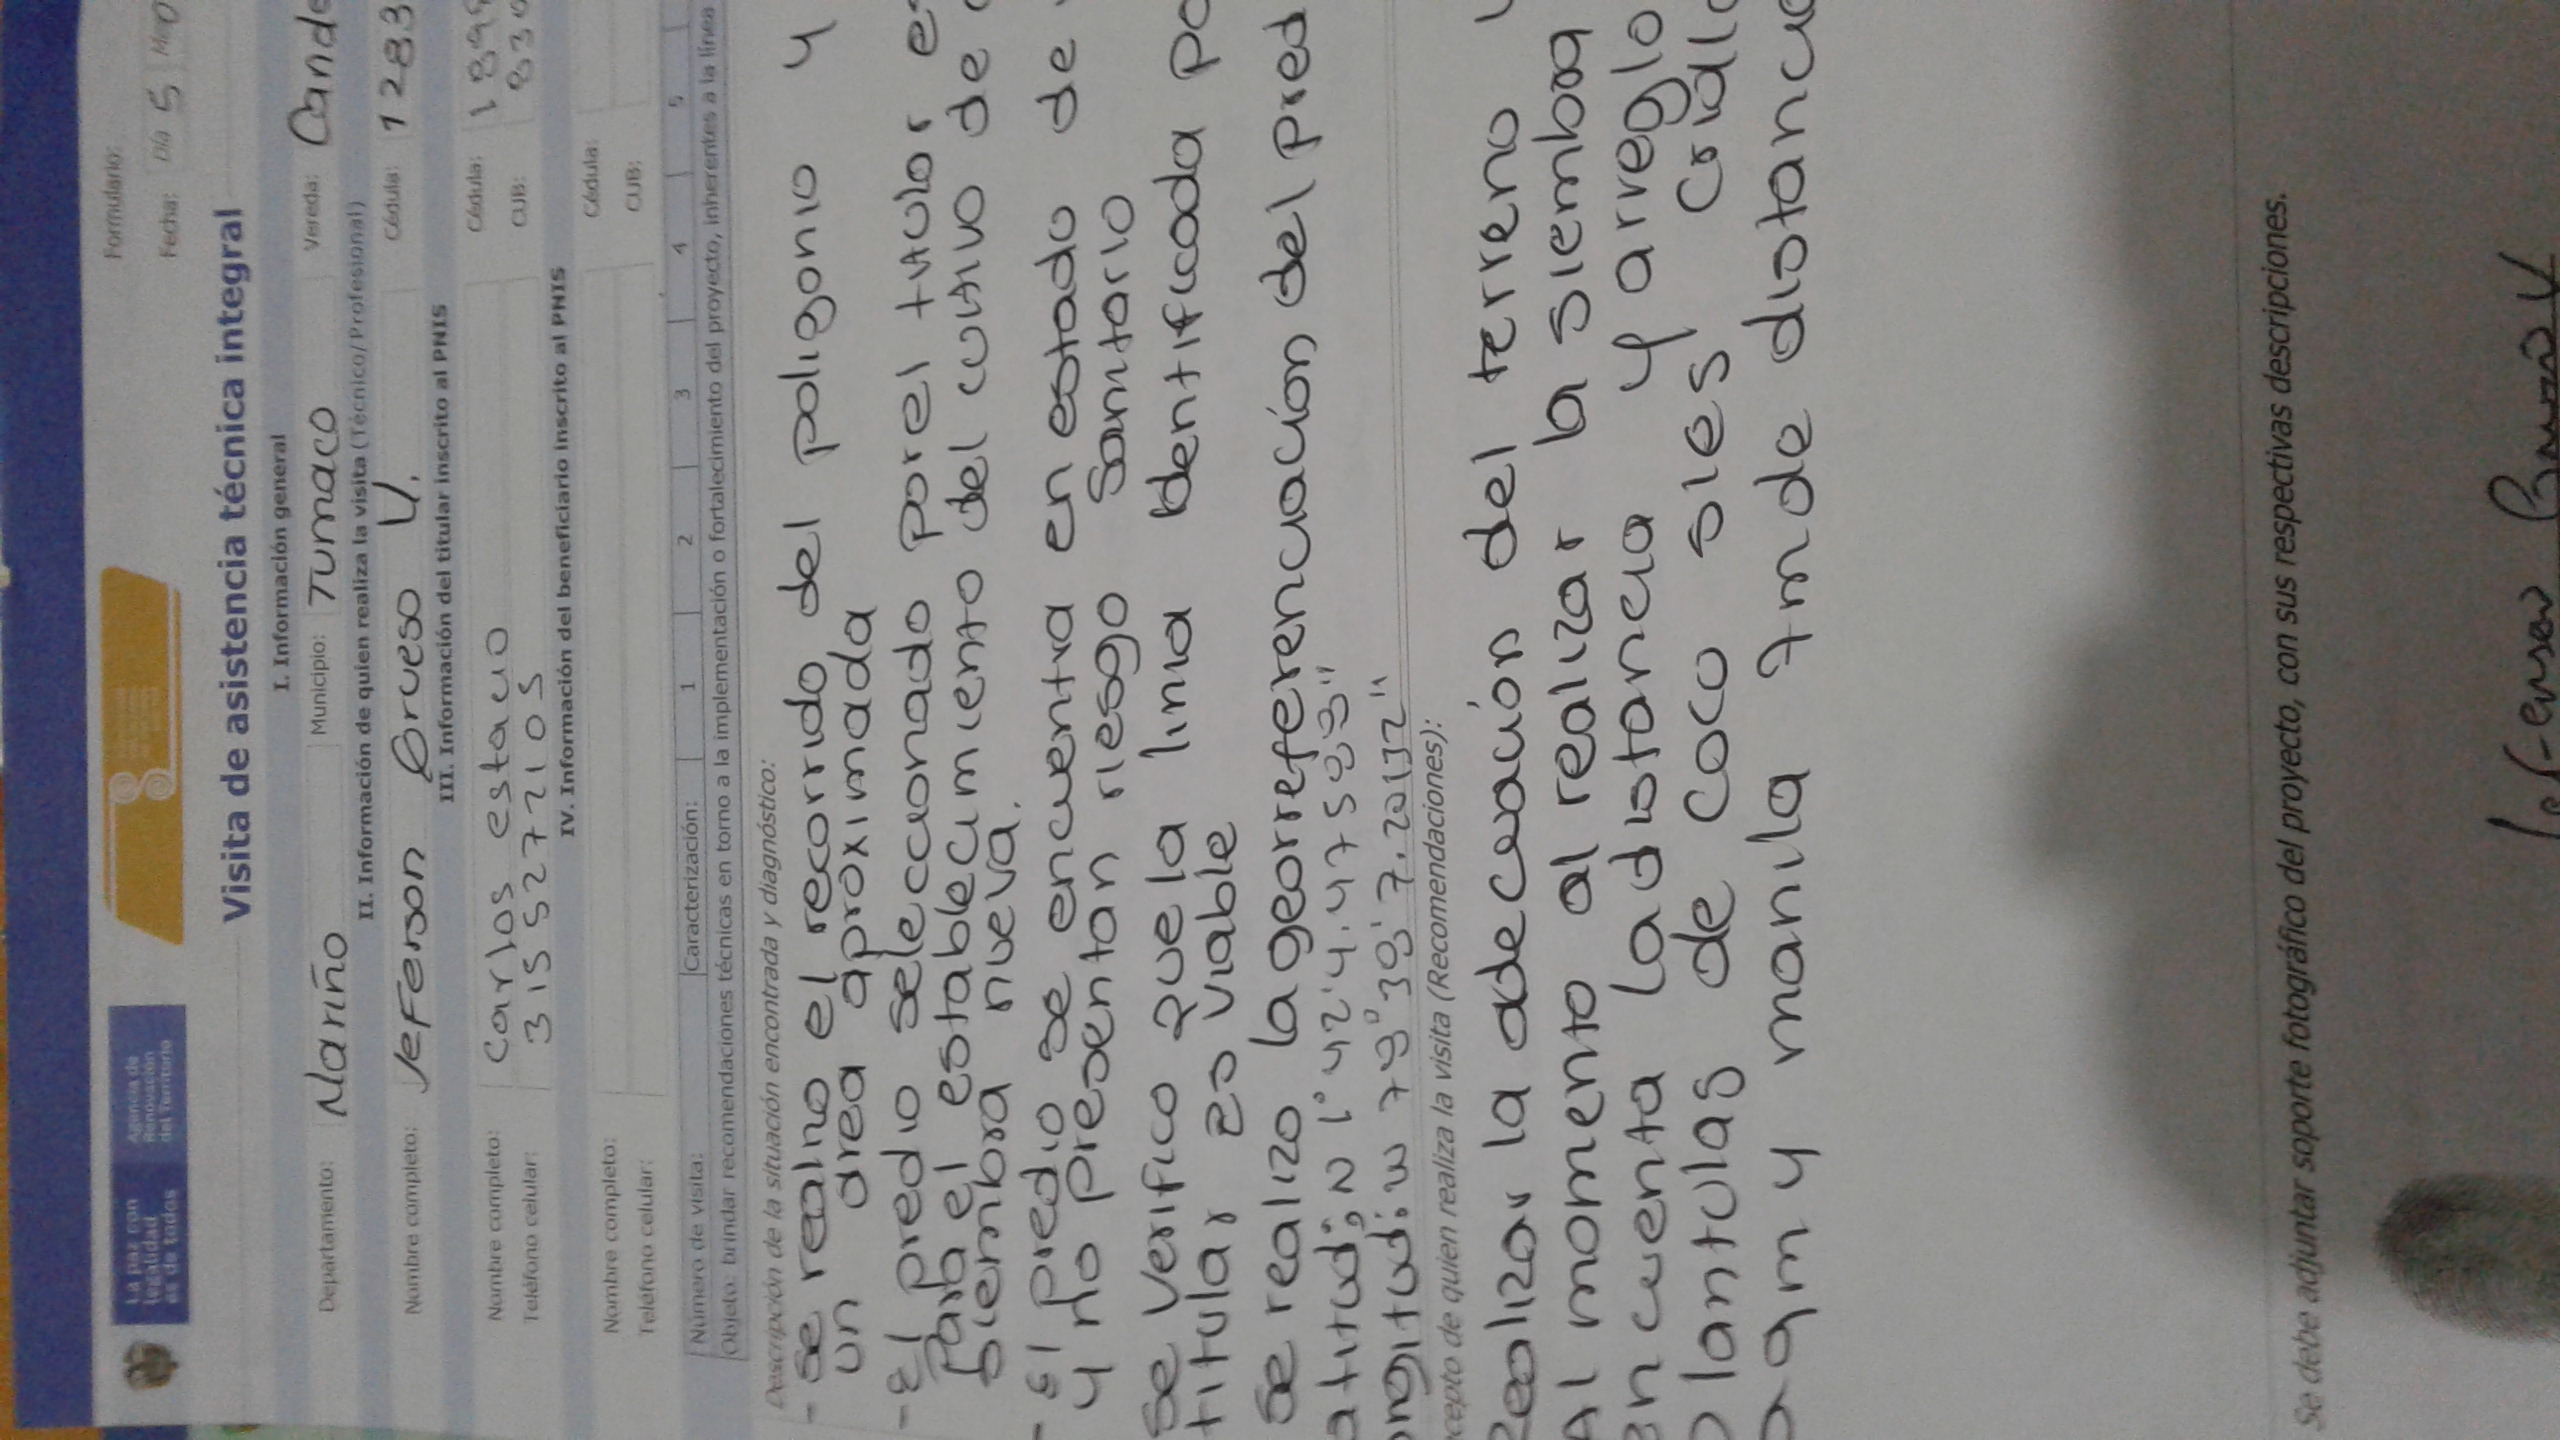 La paz con
legalidad
es de todos
Agencia de
Renovación
del Territorio
Formulario:
Fecha: Día 5
Visita de asistencia técnica integral
I. Información general
Departamento: Nariño Municipio: Tumaco Vereda: Cande
II. Información de quien realiza la visita (Técnico/Profesional)
Nombre completo: Jeferson Grueso V. Cédula: 1283
III. Información del titular inscrito al PNIS
Nombre completo: Carlos estacio Cédula: 1899
Teléfono celular: 3155277105 CUB: 830
IV. Información del beneficiario inscrito al PNIS
Nombre completo: Cédula:
Teléfono celular: CUB:
Número de visita: Caracterización: 1 2 3 4 5
Objeto: brindar recomendaciones técnicas en torno a la implementación o fortalecimiento del proyecto, inherentes a la línea
Descripción de la situación encontrada y diagnóstico:
- se realizo el recorrido del poligonio y
un area aproximada
- El predio seleccionado por el titular es
para el establecimiento del cultivo de
siembra nueva.
- El predio se encuentra en estado de
y no presentan riesgo Sanitario
se verifico que la linia identificada po
titular es viable
se realizo la georreferenciación del pred
atitud; N 1° 42' 4.47593"
ongitud; W 79° 39' 7.20132"
cepto de quien realiza la visita (Recomendaciones):
Realizar la adecuación del terreno
Al momento al realizar la siembra
en cuenta la distancia y arreglo
plantulas de coco si es criallo
9m y manila 7m de distancia
Se debe adjuntar soporte fotográfico del proyecto, con sus respectivas descripciones.